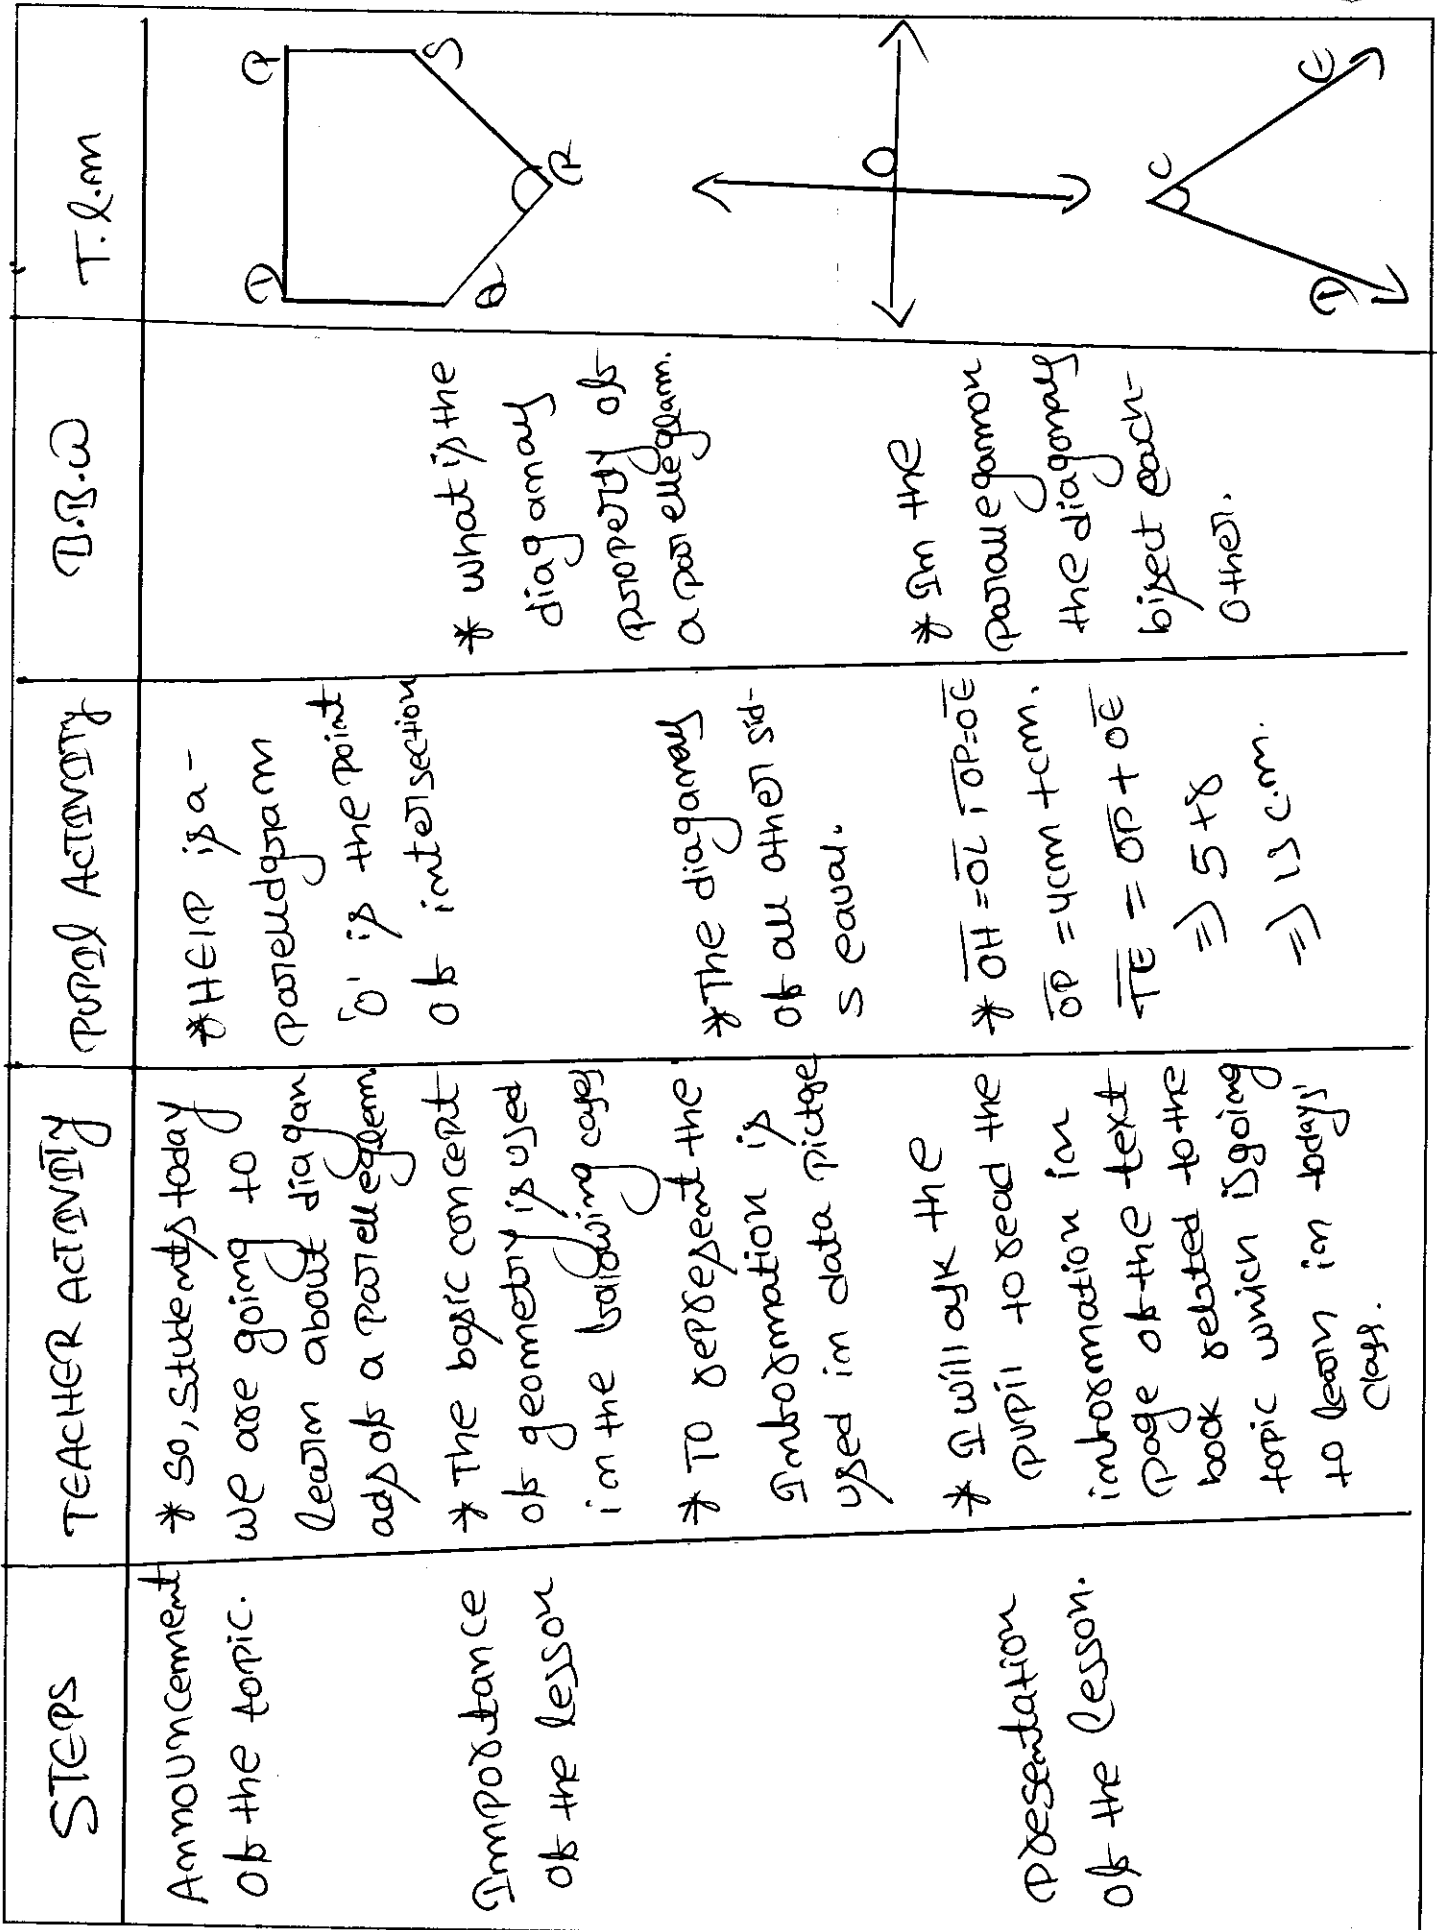 STEPS
TEACHER ACTIVITY
PUPIL ACTIVITY
B.B.W
T.L.M
Announcement
of the topic.
* So, students today
we are going to
learn about diagan
ads of a parellegleam
* HELP is a -
parelldgram
'O' is the point
of intersection
Importance
of the lesson
* The basic concept
of geometry is used
in the following cases
* To represent the
Information is
used in data pictge
* The diaganals
of all other sid-
s eaual.
* what is the
diaganals
property of
a parelleglam.
Presentation
of the lesson.
* I will ask the
pupil to read the
information in
page of the text
book related to the
topic which is going
to learn in todays'
class.
* OH = OL , OP = OE
OP = 4cm + cm.
TE = OP + OE
=> 5 + 8
=> 13 c.m.
* In the
parallegamon
the diagonals
bisect each
other.
P
S
R
Q
O
C
E
D